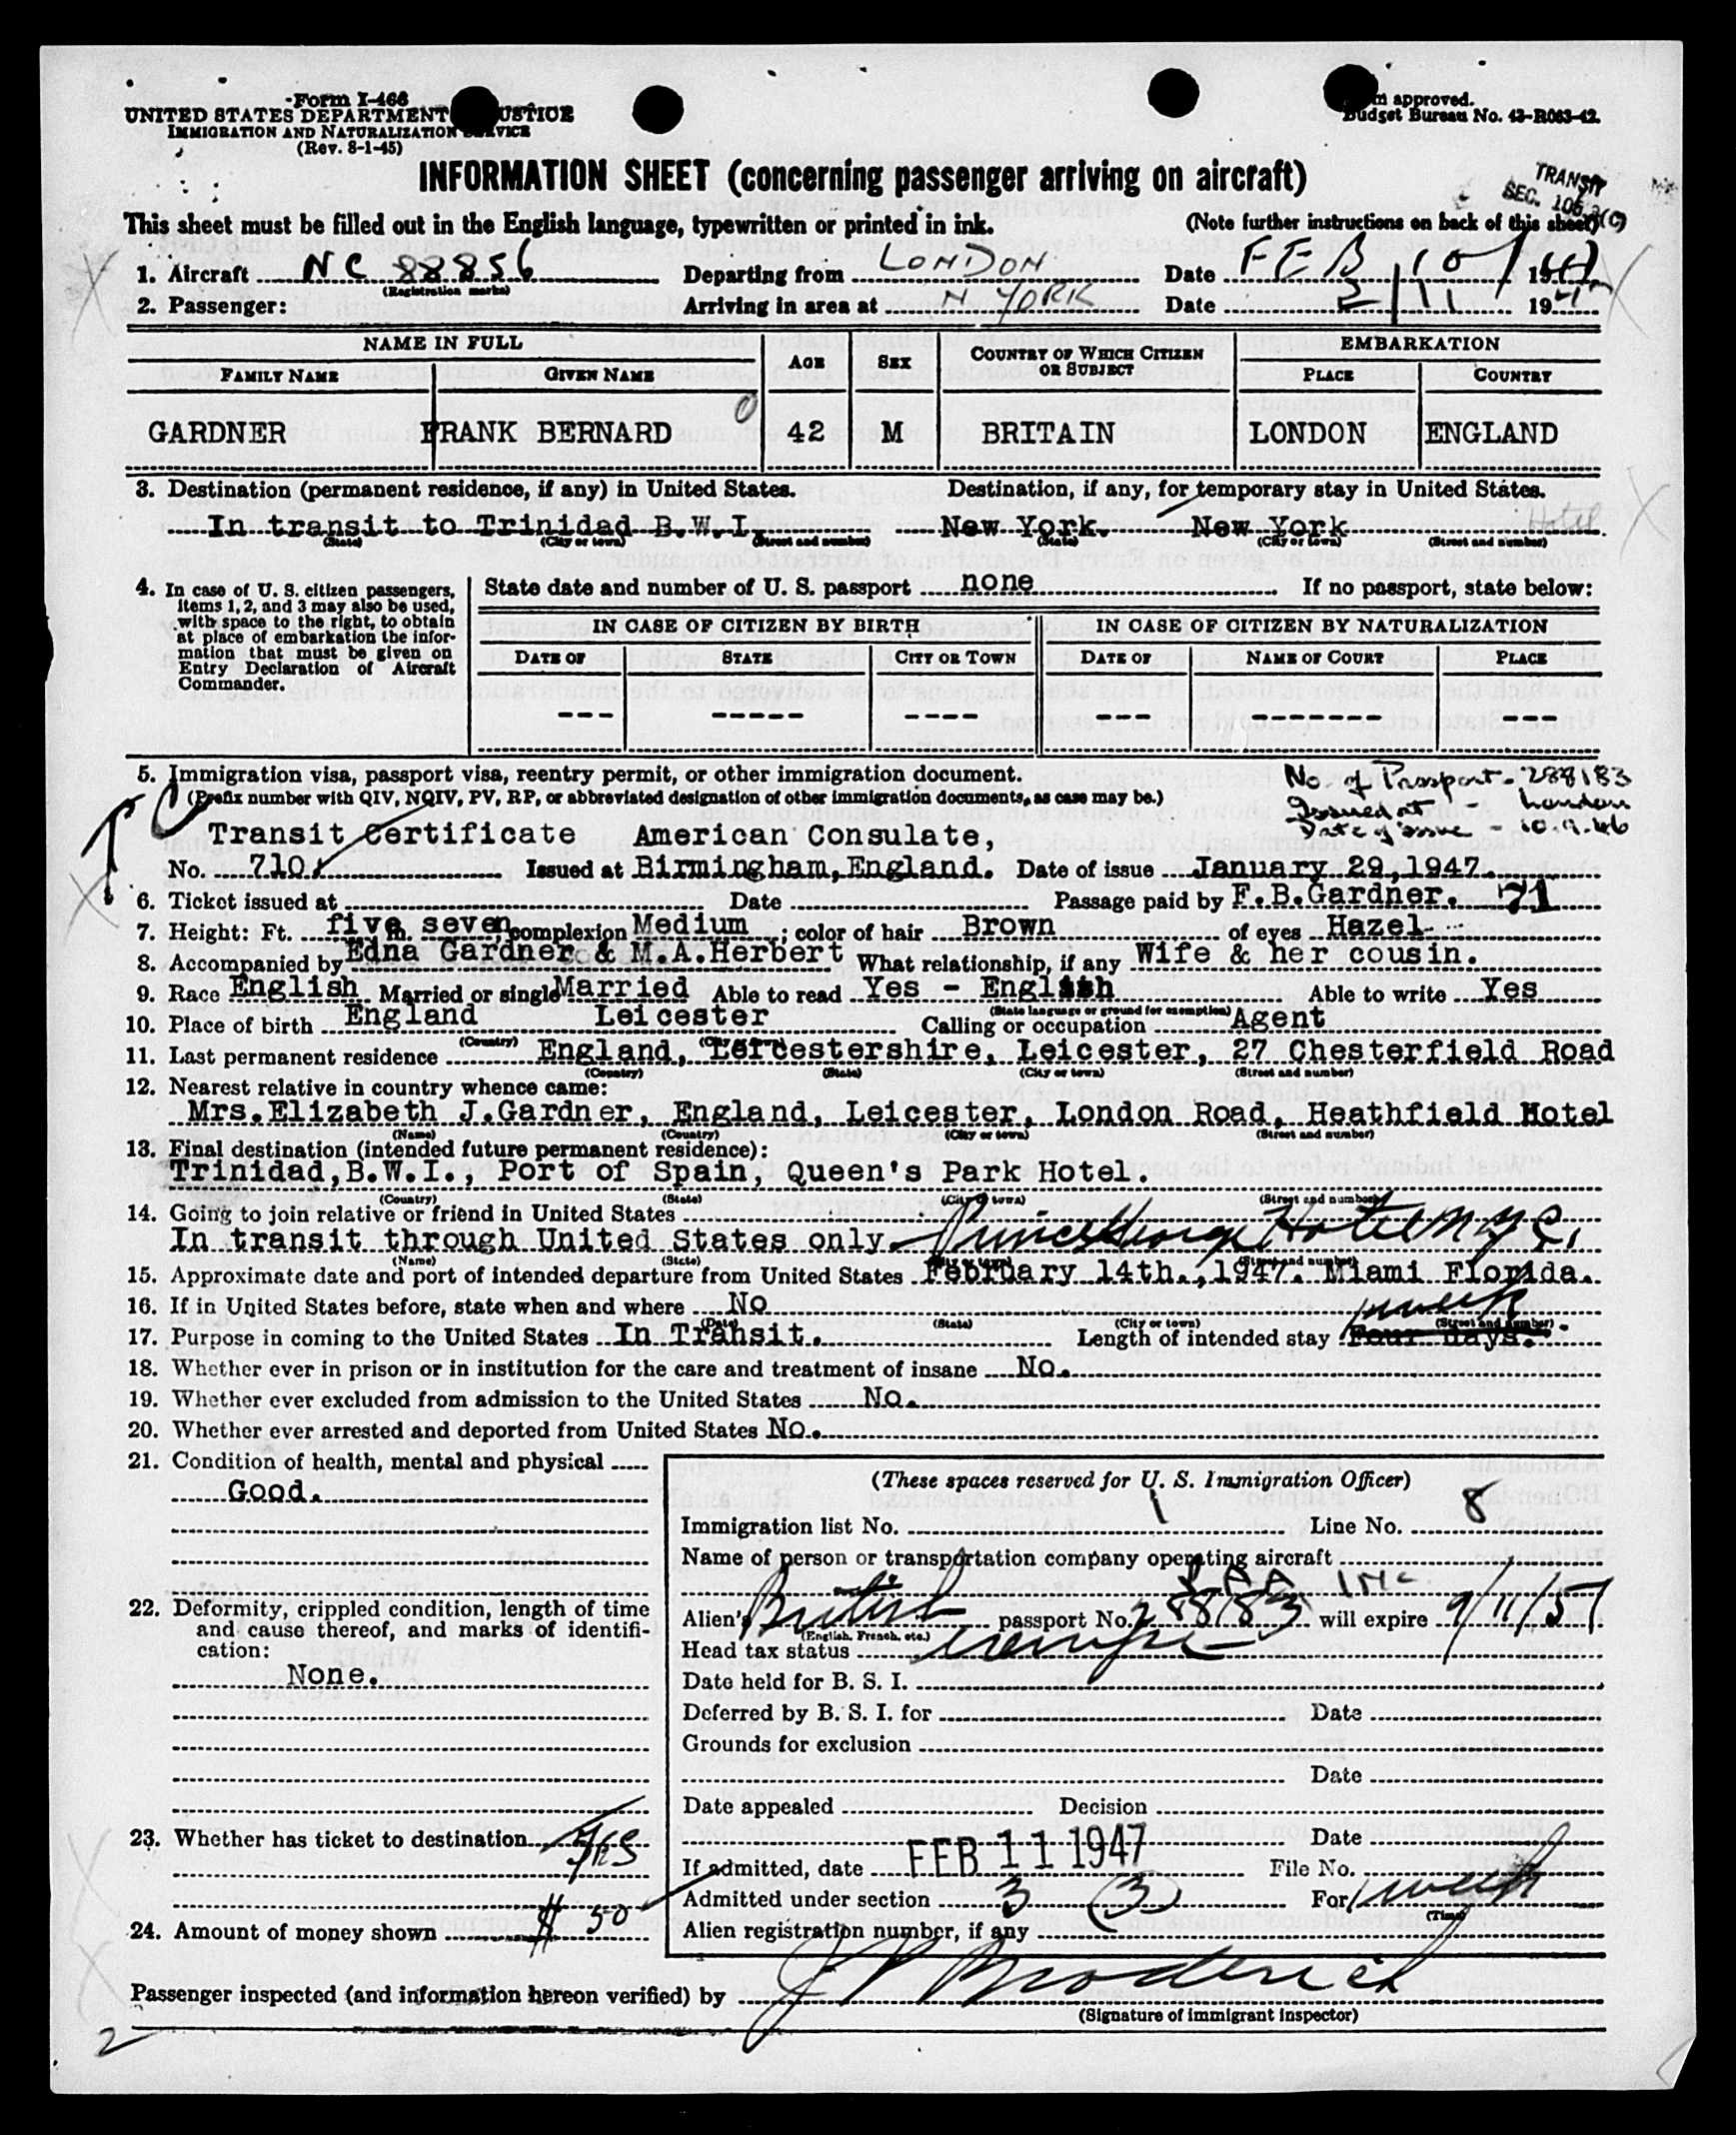 Form I-466
UNITED STATES DEPARTMENT JUSTICE
IMMIGRATION AND NATURALIZATION SERVICE
(Rev. 8-1-45)
Form approved.
Budget Bureau No. 43-R063-42.
INFORMATION SHEET (concerning passenger arriving on aircraft)
TRANSIT
SEC. 106.3(C)
This sheet must be filled out in the English language, typewritten or printed in ink. (Note further instructions on back of this sheet)
1. Aircraft NC 88856 Departing from LONDON Date FEB 10 1947
(Registration marks)
2. Passenger: Arriving in area at N YORK Date 2/11 1947
NAME IN FULL AGE SEX COUNTRY OF WHICH CITIZEN OR SUBJECT EMBARKATION
FAMILY NAME GIVEN NAME PLACE COUNTRY
GARDNER FRANK BERNARD 42 M BRITAIN LONDON ENGLAND
3. Destination (permanent residence, if any) in United States. Destination, if any, for temporary stay in United States.
In transit to Trinidad B.W.I. New York. New York Hotel
(State) (City or town) (Street and number) (State) (City or town) (Street and number)
4. In case of U. S. citizen passengers, items 1, 2, and 3 may also be used, with space to the right, to obtain at place of embarkation the information that must be given on Entry Declaration of Aircraft Commander.
State date and number of U. S. passport none If no passport, state below:
IN CASE OF CITIZEN BY BIRTH IN CASE OF CITIZEN BY NATURALIZATION
DATE OF STATE CITY OR TOWN DATE OF NAME OF COURT PLACE
--- ----- ---- --- ------- ---
5. Immigration visa, passport visa, reentry permit, or other immigration document.
(Prefix number with QIV, NQIV, PV, RP, or abbreviated designation of other immigration documents, as case may be.)
No. of Passport - 288183
Issued at - London
Date of issue - 10.9.46
Transit Certificate American Consulate,
No. 710 Issued at Birmingham, England. Date of issue January 29, 1947.
6. Ticket issued at Date Passage paid by F.B.Gardner. 71
7. Height: Ft. five in. seven complexion Medium ; color of hair Brown of eyes Hazel
8. Accompanied by Edna Gardner & M.A.Herbert What relationship, if any Wife & her cousin.
9. Race English Married or single Married Able to read Yes - English Able to write Yes
(State language or ground for exemption)
10. Place of birth England Leicester Calling or occupation Agent
(Country) (City or town)
11. Last permanent residence England, Leicestershire, Leicester, 27 Chesterfield Road
(Country) (State) (City or town) (Street and number)
12. Nearest relative in country whence came:
Mrs.Elizabeth J.Gardner, England, Leicester, London Road, Heathfield Hotel
(Name) (Country) (City or town) (Street and number)
13. Final destination (intended future permanent residence):
Trinidad,B.W.I., Port of Spain, Queen's Park Hotel.
(Country) (State) (City or town) (Street and number)
14. Going to join relative or friend in United States
In transit through United States only Prince George Hotel N.Y.C.
(Name) (State) (City or town) (Street and number)
15. Approximate date and port of intended departure from United States February 14th., 1947. Miami Florida.
16. If in United States before, state when and where No
(Date) (State) (City or town) (Street and number)
17. Purpose in coming to the United States In Transit. Length of intended stay Four days. 1 week
18. Whether ever in prison or in institution for the care and treatment of insane No.
19. Whether ever excluded from admission to the United States No.
20. Whether ever arrested and deported from United States No.
21. Condition of health, mental and physical
Good.
22. Deformity, crippled condition, length of time and cause thereof, and marks of identification:
None.
23. Whether has ticket to destination yes
24. Amount of money shown $ 50
(These spaces reserved for U. S. Immigration Officer)
Immigration list No. 1 Line No. 8
Name of person or transportation company operating aircraft
PAA INC
Alien's British passport No. 288183 will expire 9/11/57
(English, French, etc.)
Head tax status exempt
Date held for B. S. I.
Deferred by B. S. I. for Date
Grounds for exclusion
Date
Date appealed Decision
Date
If admitted, date FEB 11 1947 File No.
Admitted under section 3 (3) For 1 week
(Time)
Alien registration number, if any
Passenger inspected (and information hereon verified) by J P Broderick
(Signature of immigrant inspector)
2